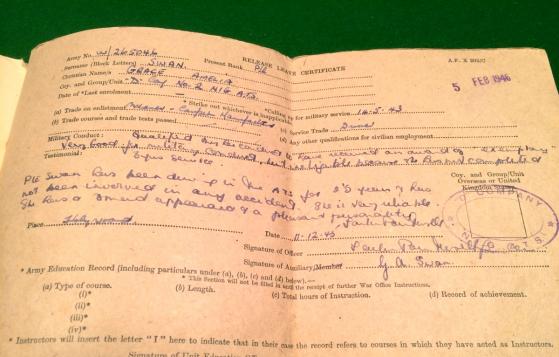 RELEASE LEAVE CERTIFICATE
A.F. X 202/
Army No. W/265046 Present Rank Pte
Surname (Block Letters) SWAN
Christian Name/s GRACE AMELIA
Coy. and Group/Unit "D" Coy No. 2 A.T.S.
5 FEB 1946
Date of *Last enrolment
* Strike out whichever is inapplicable.
*Calling up for military service 14.5.43
(a) Trade on enlistment
(b) Trade courses and trade tests passed
(c) Service Trade Driver
(d) Any other qualifications for civilian employment
Military Conduct :
Very Good
Testimonial :
service.
Coy. and Group/Unit
Overseas or United
Kingdom
Pte Swan has been driving in the ATS for 2½ years & has
not been involved in any accident. She is very reliable.
She has a smart appearance & a pleasant personality.
COMPANY
A.T.S.
Place Holywood
Date 11-12-45
Signature of Officer
Signature of Auxiliary/Member G A Swan
* Army Education Record (including particulars under (a), (b), (c) and (d) below).—
* This Section will not be filled in until the receipt of further War Office Instructions.
(a) Type of course. (b) Length. (c) Total hours of Instruction. (d) Record of achievement.
(i)*
(ii)*
(iii)*
(iv)*
* Instructors will insert the letter "I" here to indicate that in their case the record refers to courses in which they have acted as Instructors.
Signature of Unit Education